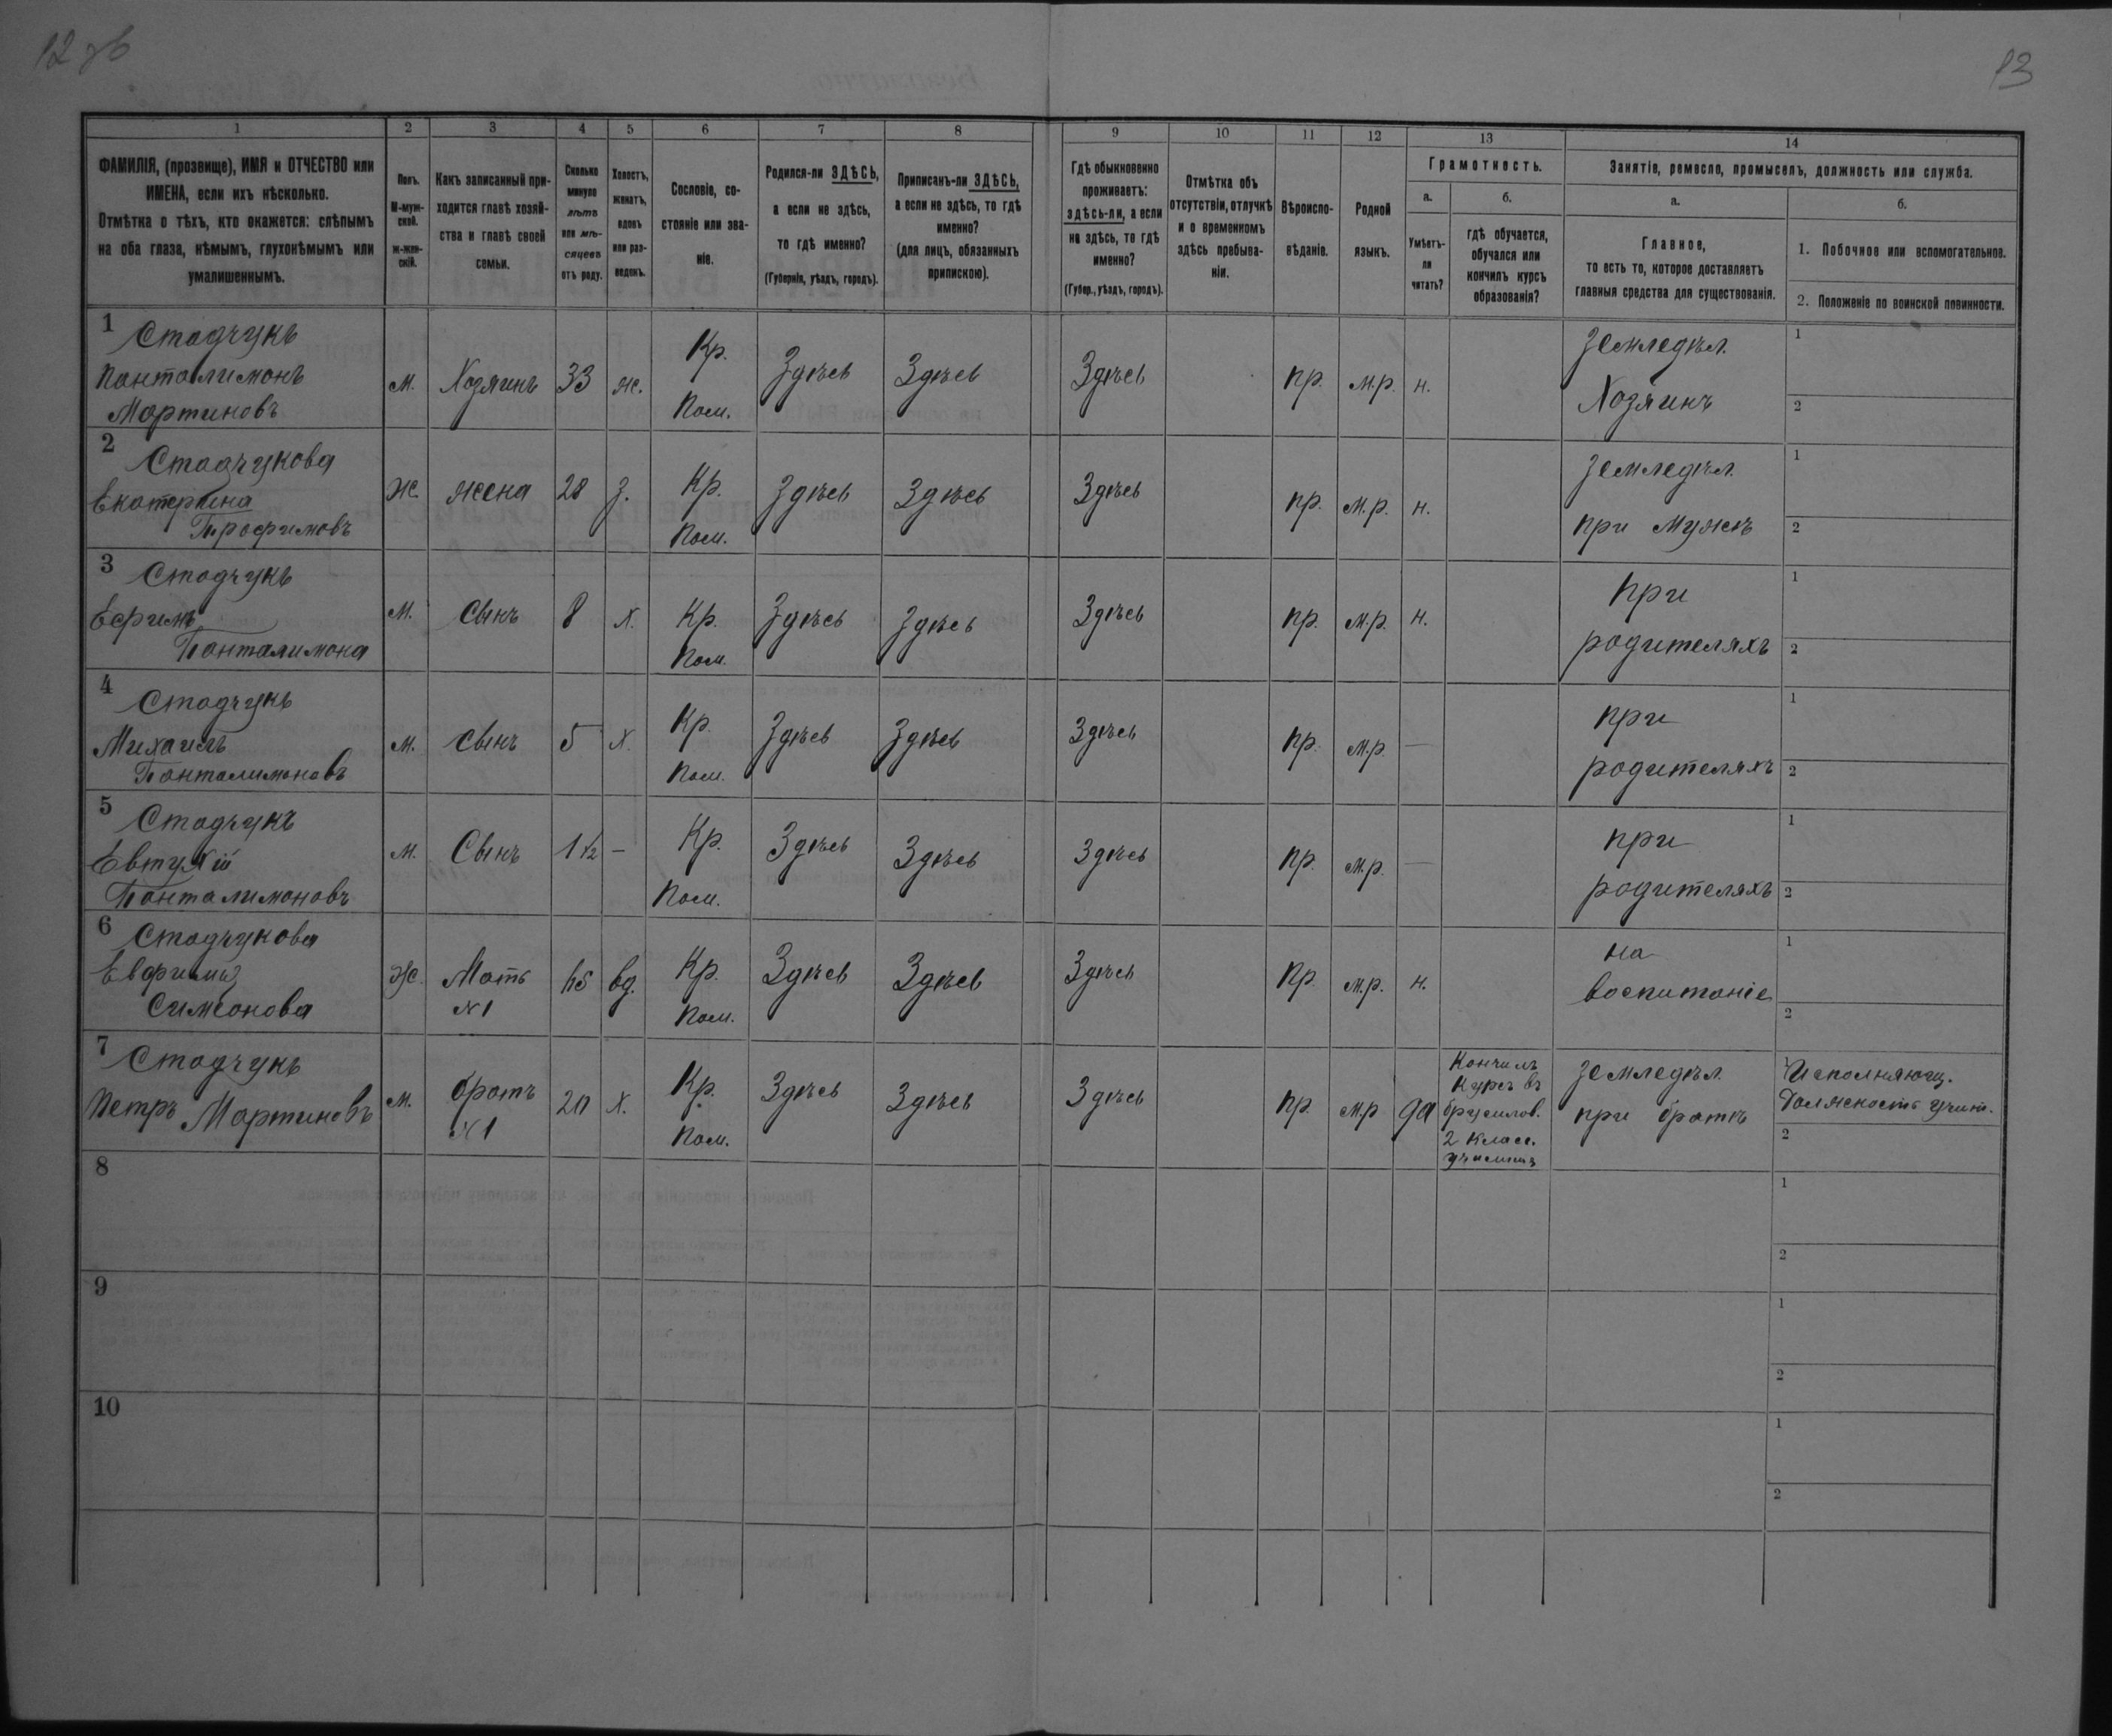 12 об
13
1 2 3 4 5 6 7 8 9 10 11 12 13 14
ФАМИЛІЯ, (прозвище), ИМЯ и ОТЧЕСТВО или
ИМЕНА, если ихъ нѣсколько.
Отмѣтка о тѣхъ, кто окажется: слѣпымъ
на оба глаза, нѣмымъ, глухонѣмымъ или
умалишеннымъ.
Полъ.
М-муж-
ской.
Ж-жен-
скій.
Какъ записанный при-
ходится главѣ хозяй-
ства и главѣ своей
семьи.
Сколько
минуло
лѣтъ
или мѣ-
сяцевъ
отъ роду.
Холостъ,
женатъ,
вдовъ
или раз-
веденъ.
Сословіе, со-
стояніе или зва-
ніе.
Родился-ли ЗДѢСЬ,
а если не здѣсь,
то гдѣ именно?
(Губернія, уѣздъ, городъ).
Приписанъ-ли ЗДѢСЬ,
а если не здѣсь, то гдѣ
именно?
(для лицъ, обязанныхъ
припискою).
Гдѣ обыкновенно
проживаетъ:
здѣсь-ли, а если
не здѣсь, то гдѣ
именно?
(Губер., уѣздъ, городъ).
Отмѣтка объ
отсутствіи, отлучкѣ
и о временномъ
здѣсь пребыва-
ніи.
Вѣроиспо-
вѣданіе.
Родной
языкъ.
Грамотность.
а.
Умѣетъ-
ли
читать?
б.
гдѣ обучается,
обучался или
кончилъ курсъ
образованія?
Занятіе, ремесло, промыселъ, должность или служба.
а.
Главное,
то есть то, которое доставляетъ
главныя средства для существованія.
б.
1. Побочное или вспомогательное.
2. Положеніе по воинской повинности.
1 Стадчукъ
Панталимонъ
Мартиновъ
м.
Хозяинъ
33
ж.
Кр.
Пом.
Здѣсь
Здѣсь
Здѣсь
пр.
м.р.
н.
Земледѣл.
Хозяинъ
1
2
2 Стадчукова
Екатерина
Трофимовъ
Ж.
жена
28
з.
Кр.
Пом.
Здѣсь
Здѣсь
Здѣсь
пр.
м.р.
н.
Земледѣл.
при мужѣ
1
2
3 Стадчукъ
Ефимъ
Панталимона
м.
сынъ
8
х.
Кр.
Пом.
Здѣсь
Здѣсь
Здѣсь
пр.
м.р.
н.
при
родителяхъ
1
2
4 Стадчукъ
Михаилъ
Панталимоновъ
м.
сынъ
5
х.
Кр.
Пом.
Здѣсь
Здѣсь
Здѣсь
пр.
м.р.
—
при
родителяхъ
1
2
5 Стадчукъ
Евтухій
Панталимоновъ
м.
Сынъ
1 1/2
—
Кр.
Пом.
Здѣсь
Здѣсь
Здѣсь
пр.
м.р.
—
при
родителяхъ
1
2
6 Стадчукова
Евфимія
Симеонова
Ж.
Мать
№1
вд.
Кр.
Пом.
Здѣсь
Здѣсь
Здѣсь
пр.
м.р.
н.
на
воспитаніе
1
2
7 Стадчукъ
Петръ Мартиновъ
м.
братъ
№1
20
х.
Кр.
Пом.
Здѣсь
Здѣсь
Здѣсь
пр.
м.р
да
Кончилъ
Курсъ въ
брусилов.
2 класс.
Земледѣл.
при братѣ
1
Исполняющ.
Должность учит.
2
8
1
2
9
1
2
10
1
2